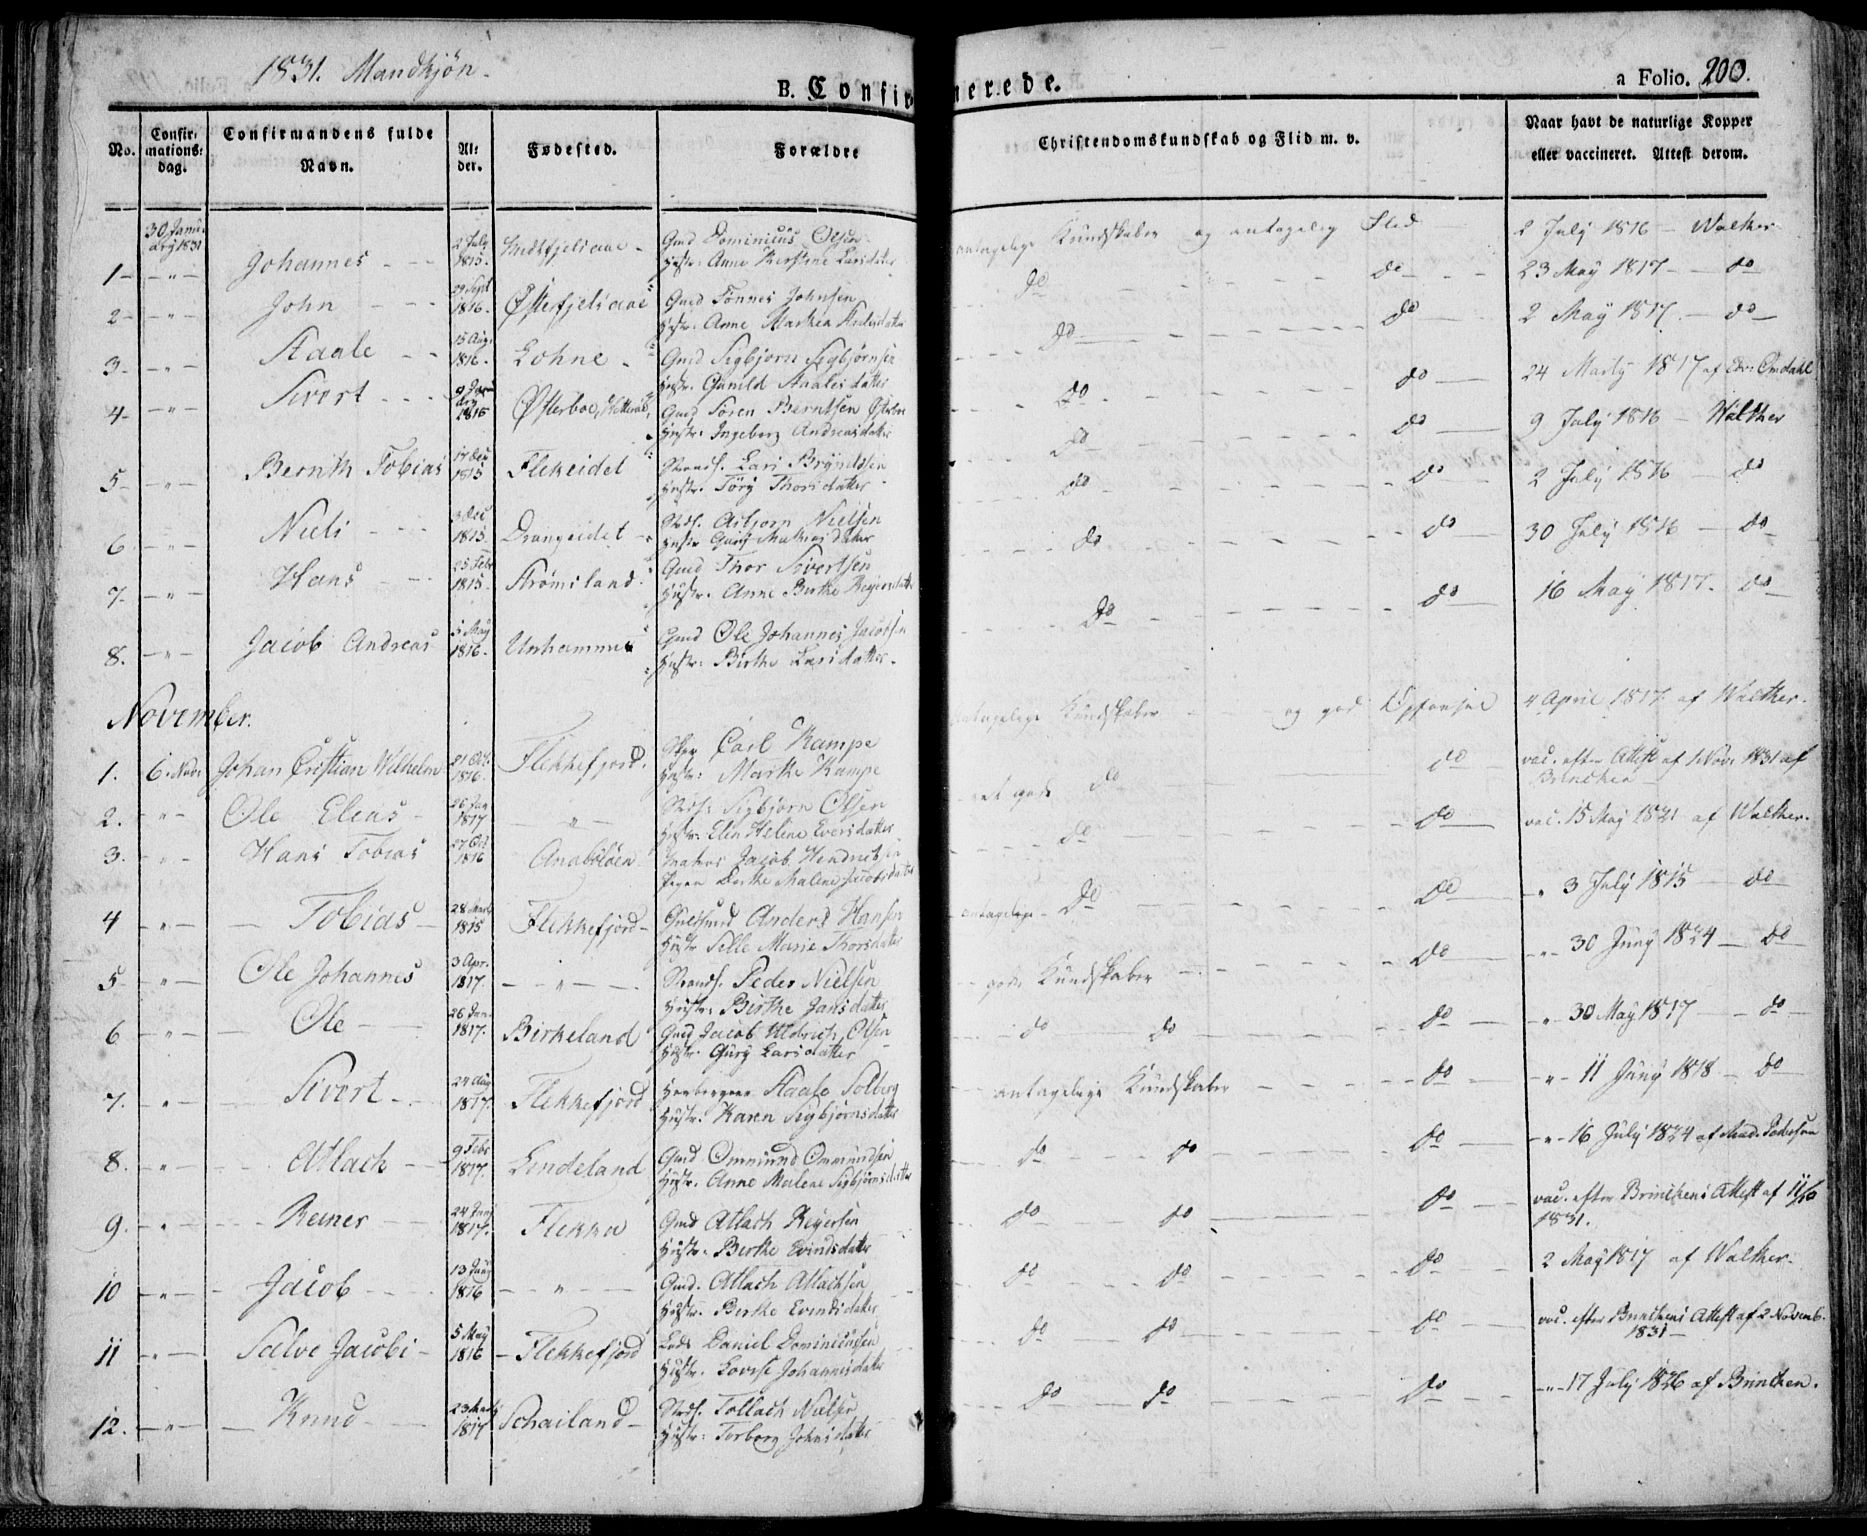 1831. Mandkjøn.
B. Confirmerede.
a Folio. 200.
No.
Confirmationsdag.
Confirmandens fulde Navn.
Alder.
Fødested.
Forældre
Christendomskundskab og Flid m. v.
Naar havt de naturlige Kopper eller vaccineret. Attest derom.
30 Januarij 1831
1 - " - Johannes 2 July 1815. Gmd Dominicus Olsen antagelige Kundskaber og antagelig Flid 2 July 1816 - Walther
Hustr. Anne Kerstine Larsdatter
2 - " - John 29 Sept 1816. Østefjelsaae Gmd Tønnes Johnsen do do 23 May 1817 - do
Hustr. Anne Marthea
3 - " - Staale 15 Aug. 1816. Lohne Gmd Sigbjørn Sigbjørnsen do do 2 May 1817. - do
Hustr. Gunild Staalesdatter
4 - " - Sivert Østerboe, Gmd Søren Berntsen do do 24 Marty 1817 af Omdahl
Hustr. Ingeborg Andreasdatter
5 - " - Bernth Tobias 17 Dec 1815 Flekeidet Strands. Lars do do 9 July 1816 - Walther
Hustr. Thorsdatter
6 - " - Niels 3 Dec 1815. Drangeidet Asbjørn Nielsen do do 2 July 1816 - do
Hustr Gury Mathiasdatter
7 - " - Hans 25 Febr 1815. Strømsland Gmd Thor Sivertsen do do 30 July 1816 - do
Hustr. Anne Birthe
8. - " - Jacob Andreas 5 May 1816. Unhammer Gmd Ole Johannes Jacobsen do do 16 May 1817. do
Hustr: Birthe Larsdatter.
November.
1. 6. Nov. Johan Cristian Wilhelm 21 Oct. 1816. Flekkefjord. Carl Kampe antagelige Kundskaber og god Opførsel 4 April 1817 af Walther.
Hustr: Marthe Kampe
2. " Ole Elias 26 Jan 1817 - " - Sigbjørn Olsen do do vac. efter Attest af 1 Nov. 1831 af Brinchen
Hustr: Elen Helene Eversdatter
3. " Hans Tobias 27 Oct 1816 Anabeløen Jacob Hendrichsen do do vac. 15 May 1821 af Walther.
Pigen Malene Jacobsdatter
4 - " - Tobias 28 Marts 1815 Flekkefjord Guldsmed Anders Hansen antagelige do do " 3 July 1815 - do
Hustr Sille Marie Thorsdatter
5 - " - Ole Johannes 3 Apr. 1817. - " - Strands. Peder Nielsen gode Kundskaber do - " - 30 Juny 1824 - do
Hustr: Birthe Jansdatter
6 - " - Ole 26 Jan. 1817. Birkeland Gmd Jacob Olsen do do do " 30 May 1817 - do
Hustr. Gury Larsdatter
7. - " - Sivert 24 Aug 1817. Flekkefjord Staale Solberg antagelige Kundskaber do - " - 11 Juny 1818 - do
Hustr: Karen Sigbjørnsdatter
8. - " - Atlach 9 Febr 1817. Lindeland Gmd Ommund Ommundsen do do do - " - 16 July 1824 af Mad. Pedersen
Hustr. Anne Malene Sigbjørnsdatter
9. - " - Reiner 24 1817. Flekka Gmd Atlach Reyersen do do do vac. efter Brinchens Attest af 1831.
Hustr. Birthe Evindsdatter
10 - " - Jacob 13 1816 - " - Gmd. Atlach Atlachsen do do do 2 May 1817 af Walther.
Hustr. Birthe Evindsdatter
11 - " - Salve Jacobi 5 May 1816 Flekkefjord Lods Daniel Dominicussen do do do vac. efter Brinchens Attest af 2 Novemb. 1831
Hustr. Lovise Johannisdatter
12. - " - Knud 23 1817 Schailand Tollach do do do - " - 17 July 1826 af Brinchen.
Hustr: Torborg Johnsdatter